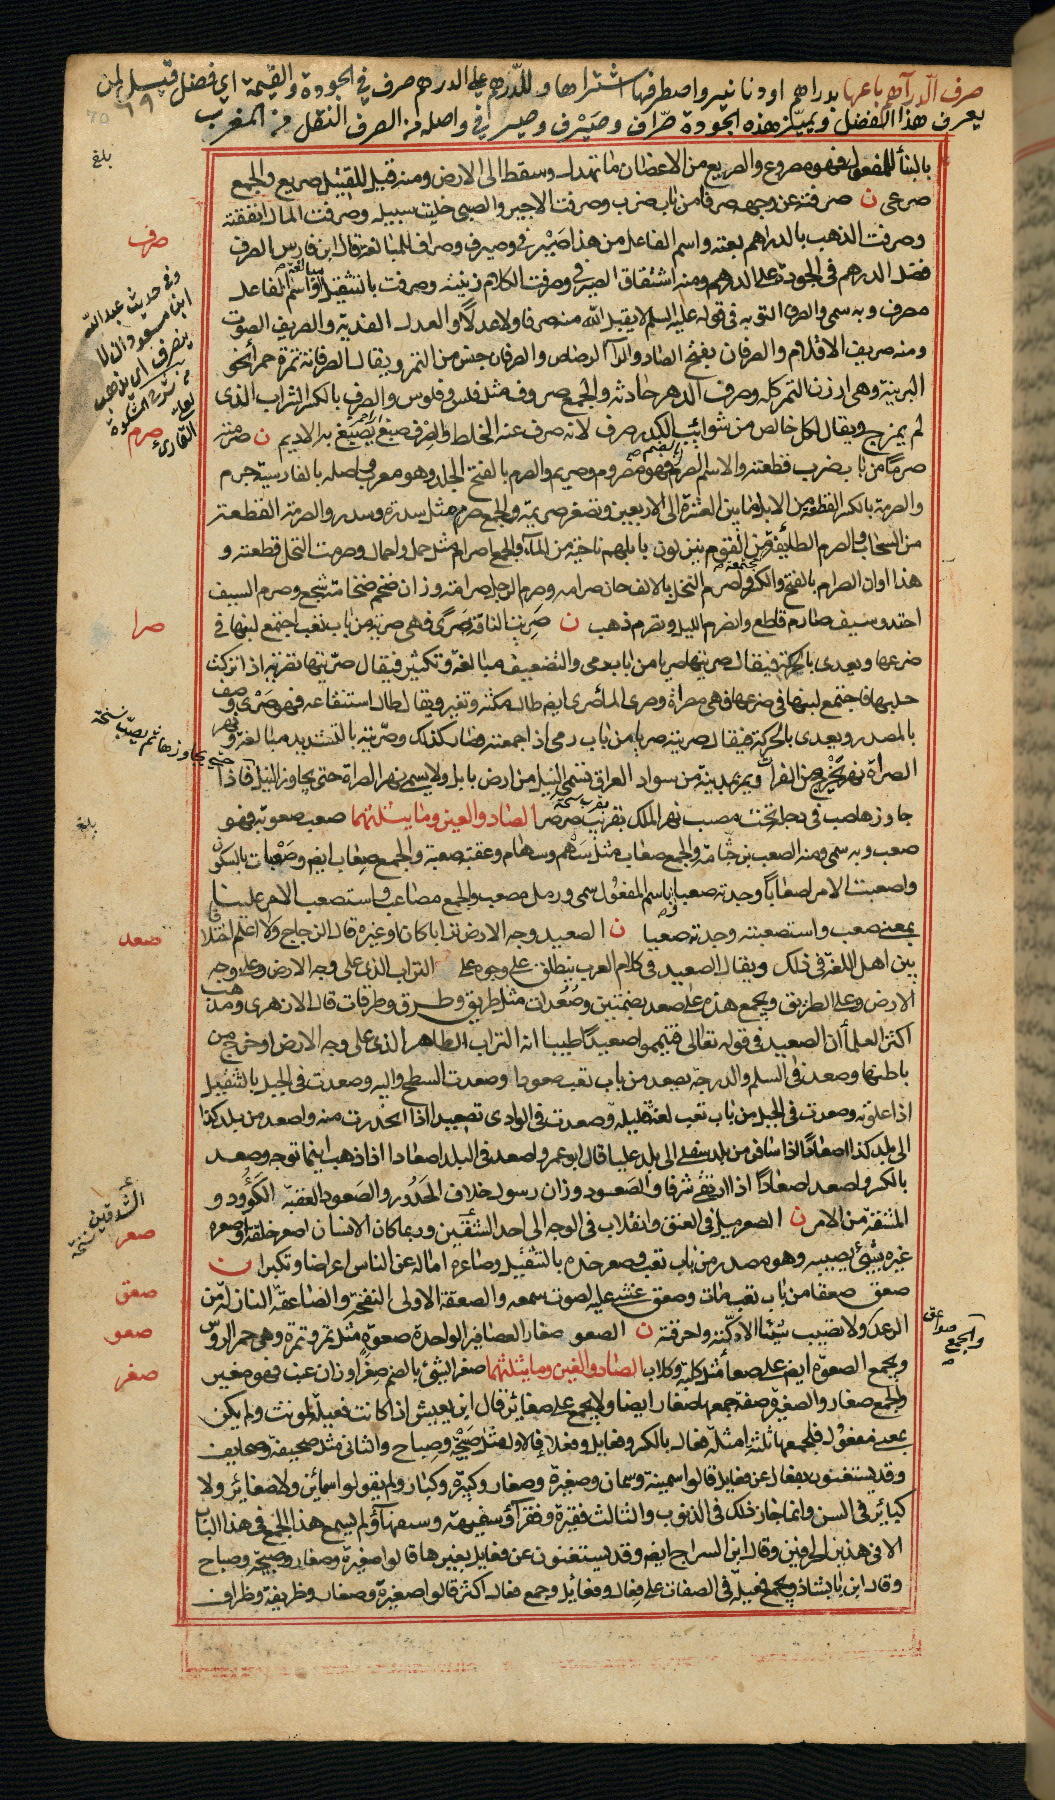 صرف الدراهم باعها بدراهم او دنانير واصطرفها اشتراها وللدرهم على الدرهم صرف في الجودة والقيمة اي فضل قيل لمن
يعرف هذا الفضل ويميز هذه الجودة صراف وصيرف وصيرفي واصله من الصرف النقل من المغرب
٦٩
بالبناء للمفعول فهو مصروع والصريع من الاغصان ما تهدل وسقط الى الارض ومنه قيل للقتيل صريع والجمع
صرعى ن صرفته عن وجهه صرفا من باب ضرب وصرفت الاجير والصبي خليت سبيله وصرفت المال انفقته
وصرفت الذهب بالدراهم بعته واسم الفاعل من هذا صيرفي وصيرف وصراف للمبالغة قال ابن فارس الصرف
فضل الدرهم في الجودة على الدرهم ومنه اشتقاق الصيرفي وصرفت الكلام زينته وصرفت بالتثقيل مبالغة واسم الفاعل
مصرف وبه سمي والصرف التوبة في قوله عليه السلم لا يقبل الله منه صرفا ولا عدلا والعدل الفدية والصريف الصوت
ومنه صريف الاقلام والصرفان بفتح الصاد والراء الرصاص والصرفان جنس من التمر ويقال الصرفانة تمرة حمراء نحو
البرنية وهي ارزن التمر كله وصرف الدهر حادثه والجمع صروف مثل فلس وفلوس والصرف بالكسر الشراب الذي
لم يمزج ويقال لكل خالص من شوائب الكدر صرف لانه صرف عنه الخلط والصرف صبغ احمر يصبغ به الاديم ن صرمته
صرما من باب ضرب قطعته والاسم الصرم بالضم فهو مصروم وصريم والصرم بالفتح الجلد وهو معرب واصله بالفارسية جرم
والصرمة بالكسر القطعة من الابل ما بين العشرة الى الاربعين وتصغر صريمة والجمع صرم مثل سدرة وسدر والصرمة القطعة
من السحاب والصرم الطائفة المجتمعة من القوم ينزلون بابلهم ناحية من الماء والجمع اصرام مثل حمل واحمال وصرمت النخل قطعته و
هذا اوان الصرام بالفتح والكسر واصرم النخل بالالف حان صرامه وصرم الرجل صرامة وزان ضخم ضخامة شجع وصرم السيف
احتد وسيف صارم قاطع وانصرم الليل وتصرم ذهب ن صريت الناقة صرى فهي صرية من باب تعب اجتمع لبنها في
ضرعها ويعدى بالحركة فيقال صريتها صريا من باب رمى والتضعيف مبالغة وتكثير فيقال صريتها تصرية اذا تركت
حلبها فاجتمع لبنها في ضرعها فهي مصراة وصري الماء صرى ايضا طال مكثه وتغير ويقال طال استنقاعه فهو صرى وصف
بالمصدر ويعدى بالحركة فيقال صريته صريا من باب رمى اذا جمعته فصار كذلك وصريته بالتشديد مبالغة ونهر
الصراة نهر يخرج من الفرات ويمر بمدينة من سواد العراق تسمى النيل من ارض بابل ولا يسمى نهر الصراة حتى يجاوز النيل فاذا
جاوزها صب في دجلة تحت مصب نهر الملك بقرب صرصر الصاد والعين وما يثلثهما صعب صعوبة فهو
صعب وبه سمي ومنه الصعب بن جثامة والجمع صعاب مثل سهم وسهام وعقبة صعبة والجمع صعاب ايضا وصعبات بالسكون
واصعبت الامر اصعابا وجدته صعبا وباسم المفعول سمي ورجل مصعب والجمع مصاعب واستصعب الامر علينا
بمعنى صعب واستصعبته وجدته صعبا ن الصعيد وجه الارض ترابا كان او غيره قال الزجاج ولا اعلم اختلافا
بين اهل اللغة في ذلك ويقال الصعيد في كلام العرب ينطلق على وجوه على التراب الذي على وجه الارض وعلى وجه
الارض وعلى الطريق ويجمع هذه على صعد بضمتين وصعدات مثل طريق وطرق وطرقات قال الازهري ومذهب
اكثر العلماء ان الصعيد في قوله تعالى فتيمموا صعيدا طيبا انه التراب الطاهر الذي على وجه الارض او خرج من
باطنها وصعد في السلم والدرجة يصعد من باب تعب صعودا وصعدت السطح واليه وصعدت في الجبل بالتثقيل
اذا علوته وصعدت في الجبل من باب تعب لغة قليلة وصعدت في الوادي تصعيدا اذا انحدرت منه واصعد من بلد كذا
الى بلد كذا اصعادا اذا سافر من بلد سفلى الى بلد عليا قال ابو عمرو اصعد في البلد اصعادا اذا ذهب اينما توجه وصعد
بالكسر واصعد اصعادا اذا ارتقى شرفا والصعود وزان رسول خلاف الحدور والصعود العقبة الكؤود و
المشقة من الامر ن الصعر ميل في العنق وانقلاب في الوجه الى احد الشقين وربما كان الانسان اصعر خلقة او صعره
غيره بشيء يصيبه وهو مصدر من باب تعب وصعر خده بالتثقيل وصاعره اماله عن الناس اعراضا وتكبرا ن
صعق صعقا من باب تعب مات وصعق غشي عليه لصوت سمعه والصعقة الاولى النفخة والصاعقة النازلة من
الرعد ولا تصيب شيئا الا دكته واحرقته ن الصعو صغار العصافير الواحدة صعوة مثل تمر وتمرة وهي حمر الرؤس
ويجمع الصعوة ايضا على صعاء مثل كلبة وكلاب الصاد والغين وما يثلثهما صغر الشيء بالضم صغرا وزان عنب فهو صغير
والجمع صغار والصغيرة صفة جمعها صغار ايضا ولا يجمع على صغائر قال ابن يعيش اذا كانت فعيلة لمونث ولم يكن
بمعنى مفعول فلجمعها ثلثة امثلة فعال بالكسر وفعايل وفعلاء فالاول مثل صبيحة وصباح والثاني مثل صحيفة وصحايف
وقد يستغنون بفعال عن فعايل قالوا سمينة وسمان وصغيرة وصغار وكبيرة وكبار ولم يقولوا سمائن ولا صغائر ولا
كبائر في السن وانما جاز ذلك في الذنوب والثالث فقيرة وفقراء وسفيهة وسفهاء ولم يسمع هذا الجمع في هذا الباب
الا في هذين الحرفين وقال ابن السراج ايضا وقد يستغنون عن فعايل بغيرها قالوا صغيرة وصغار وصبيحة وصباح
وقال ابن بابشاذ ويجمع فعيلة في الصفات على فعال وفعائل وجمع فعال اكثر قالوا صغيرة وصغار وظريفة وظراف
بلغ
صرف
وفي حديث عبد الله
ابن مسعود
ينصرف اي يذهب
القارئ
صرم
صرا
حتى يجاوزها ثم يصب نسخة
بلغ
صعد
الشدقين نسخة
صعر
صعق
والجمع صواعق
صعو
صغر